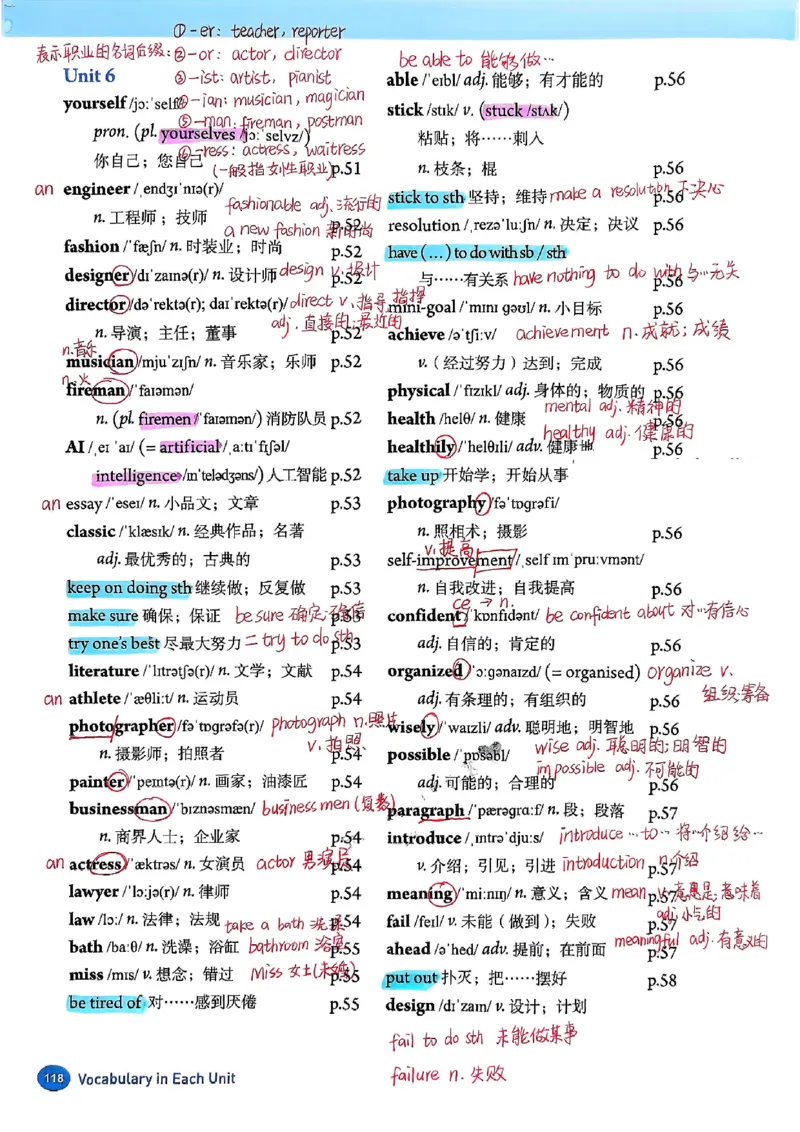 ①-er: teacher, reporter
表示职业的名词后缀:②-or: actor, director
Unit 6 ③-ist: artist, pianist
yourself /jɔːˈself/ ④-ian: musician, magician
⑤-man: fireman, postman
pron. (pl. yourselves /jɔːˈselvz/)
⑥-ress: actress, waitress
你自己；您自己 (一般指女性职业) p.51
an engineer /ˌendʒɪˈnɪə(r)/
fashionable adj. 流行的
n. 工程师；技师 p.52
a new fashion 新时尚
fashion /ˈfæʃn/ n. 时装业；时尚 p.52
designer /dɪˈzaɪnə(r)/ n. 设计师 design v. 设计 p.52
director /dəˈrektə(r); daɪˈrektə(r)/ direct v. 指导,指挥
adj. 直接的;最近的
n. 导演；主任；董事 p.52
n.音乐
musician /mjuˈzɪʃn/ n. 音乐家；乐师 p.52
n.火
fireman /ˈfaɪəmən/
n. (pl. firemen /ˈfaɪəmən/) 消防队员 p.52
AI /ˌeɪ ˈaɪ/ (= artificial /ˌɑːtɪˈfɪʃəl/
intelligence /ɪnˈtelədʒəns/) 人工智能 p.52
an essay /ˈeseɪ/ n. 小品文；文章 p.53
classic /ˈklæsɪk/ n. 经典作品；名著
adj. 最优秀的；古典的 p.53
keep on doing sth 继续做；反复做 p.53
make sure 确保；保证 be sure 确定;确信 p.53
try one's best 尽最大努力 = try to do sth p.53
literature /ˈlɪtrətʃə(r)/ n. 文学；文献 p.54
an athlete /ˈæθliːt/ n. 运动员 p.54
photographer /fəˈtɒɡrəfə(r)/ photograph n.照片
v. 拍照
n. 摄影师；拍照者 p.54
painter /ˈpeɪntə(r)/ n. 画家；油漆匠 p.54
businessman /ˈbɪznəsmæn/ businessmen (复数)
n. 商界人士；企业家 p.54
an actress /ˈæktrəs/ n. 女演员 actor 男演员 p.54
lawyer /ˈlɔːjə(r)/ n. 律师 p.54
law /lɔː/ n. 法律；法规 take a bath 洗澡 p.54
bath /bɑːθ/ n. 洗澡；浴缸 bathroom 浴室 p.55
miss /mɪs/ v. 想念；错过 Miss 女士(未婚) p.55
be tired of 对……感到厌倦 p.55
be able to 能够做…
able /ˈeɪbl/ adj. 能够；有才能的 p.56
stick /stɪk/ v. (stuck /stʌk/)
粘贴；将……刺入
n. 枝条；棍 p.56
stick to sth 坚持；维持 make a resolution 下决心 p.56
resolution /ˌrezəˈluːʃn/ n. 决定；决议 p.56
have (…) to do with sb / sth
与……有关系 have nothing to do with 与…无关 p.56
mini-goal /ˈmɪnɪ ɡəʊl/ n. 小目标 p.56
achieve /əˈtʃiːv/ achievement n. 成就；成绩
v.（经过努力）达到；完成 p.56
physical /ˈfɪzɪkl/ adj. 身体的；物质的 p.56
mental adj. 精神的
health /helθ/ n. 健康 p.56
healthy adj. 健康的
healthily /ˈhelθɪli/ adv. 健康地 p.56
take up 开始学；开始从事
photography /fəˈtɒɡrəfi/
n. 照相术；摄影 p.56
v. 提高
self-improvement /ˌself ɪmˈpruːvmənt/
n. 自我改进；自我提高 p.56
ce → n.
confident /ˈkɒnfɪdənt/ be confident about 对…有信心
adj. 自信的；肯定的 p.56
organized /ˈɔːɡənaɪzd/ (= organised) organize v.
组织;筹备
adj. 有条理的；有组织的 p.56
wisely /ˈwaɪzli/ adv. 聪明地；明智地 p.56
wise adj. 聪明的;明智的
possible /ˈpɒsəbl/
impossible adj. 不可能的
adj. 可能的；合理的 p.56
paragraph /ˈpærəɡrɑːf/ n. 段；段落 p.57
introduce /ˌɪntrəˈdjuːs/ introduce … to … 将…介绍给…
v. 介绍；引见；引进 introduction n.介绍 p.57
meaning /ˈmiːnɪŋ/ n. 意义；含义 mean v.意思是;意味着 p.57
adj.小气的
fail /feɪl/ v. 未能（做到）；失败 p.57
ahead /əˈhed/ adv. 提前；在前面 meaningful adj. 有意义的 p.57
put out 扑灭；把……摆好 p.58
design /dɪˈzaɪn/ v. 设计；计划
fail to do sth 未能做某事
failure n. 失败
118 Vocabulary in Each Unit